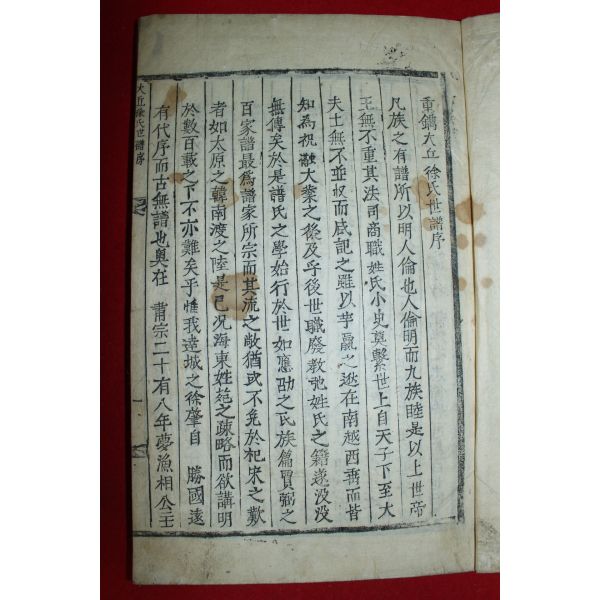 重鐫大丘徐氏世譜序
凡族之有譜所以明人倫也人倫明而九族睦是以上世帝
王無不重其法司商職姓氏小史奠繫世上自天子下至大
夫士無不並収而咸記之雖以芋嬴之逖在南越西而皆
知為祝融大業之後及乎後世職廢教弛姓氏之籍遂没没
無傳矣於是譜氏之學始行於世如應劭之氏族篇賈弼之
百家譜最爲譜家所宗而其流之敝猶或不免於杞宋之歎
者如太原之韓南渡之陸是已况海東姓苑之疎略而欲講明
於數百載之下不亦難矣乎惟我達城之徐肇自 勝國遠
有代序而古無譜也奥在 肅宗二十有八年夢漁相公王
大丘徐氏世譜序
一